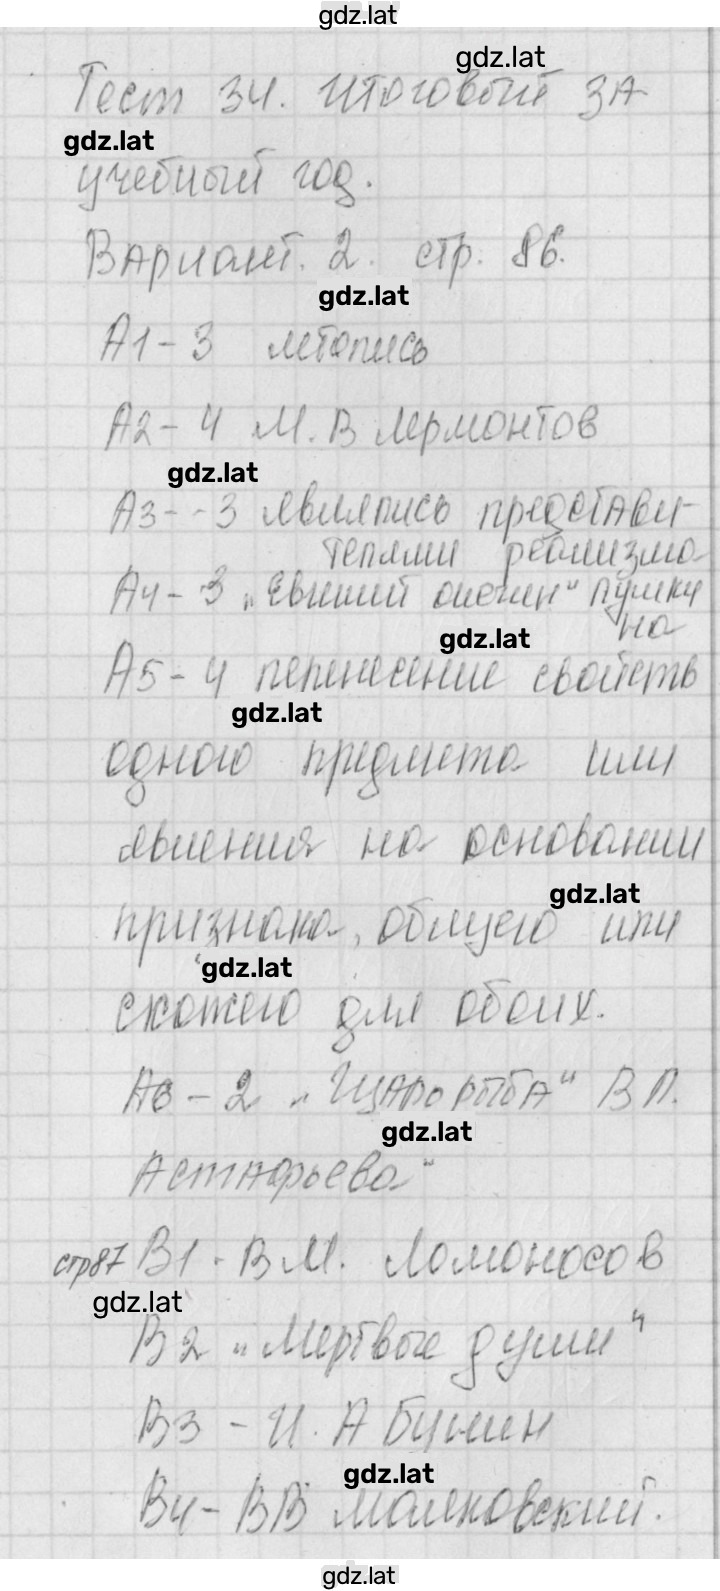 gdz.lat
gdz.lat
Тест 34. Итоговый за
gdz.lat
учебный год.
Вариант. 2. стр. 86.
gdz.lat
А1 - 3 летопись
А2 - 4 М. В Лермонтов
gdz.lat
А3 - - 3 являлись представи-
телями реализма
А4 - 3 „Евгений онегин" пушки
на
gdz.lat
А5 - 4 перенесение свойств
gdz.lat
одного предмета или
явления на основании
gdz.lat
признака, общего или
gdz.lat
схожего для обоих.
А6 - 2 „Царь рыба" В П.
gdz.lat
Астафьева"
стр87 В1 - В М. Ломоносов
gdz.lat
В2 „Мертвые души"
В3 - И. А Бунин
gdz.lat
В4 - ВВ Маяковский.
gdz.lat